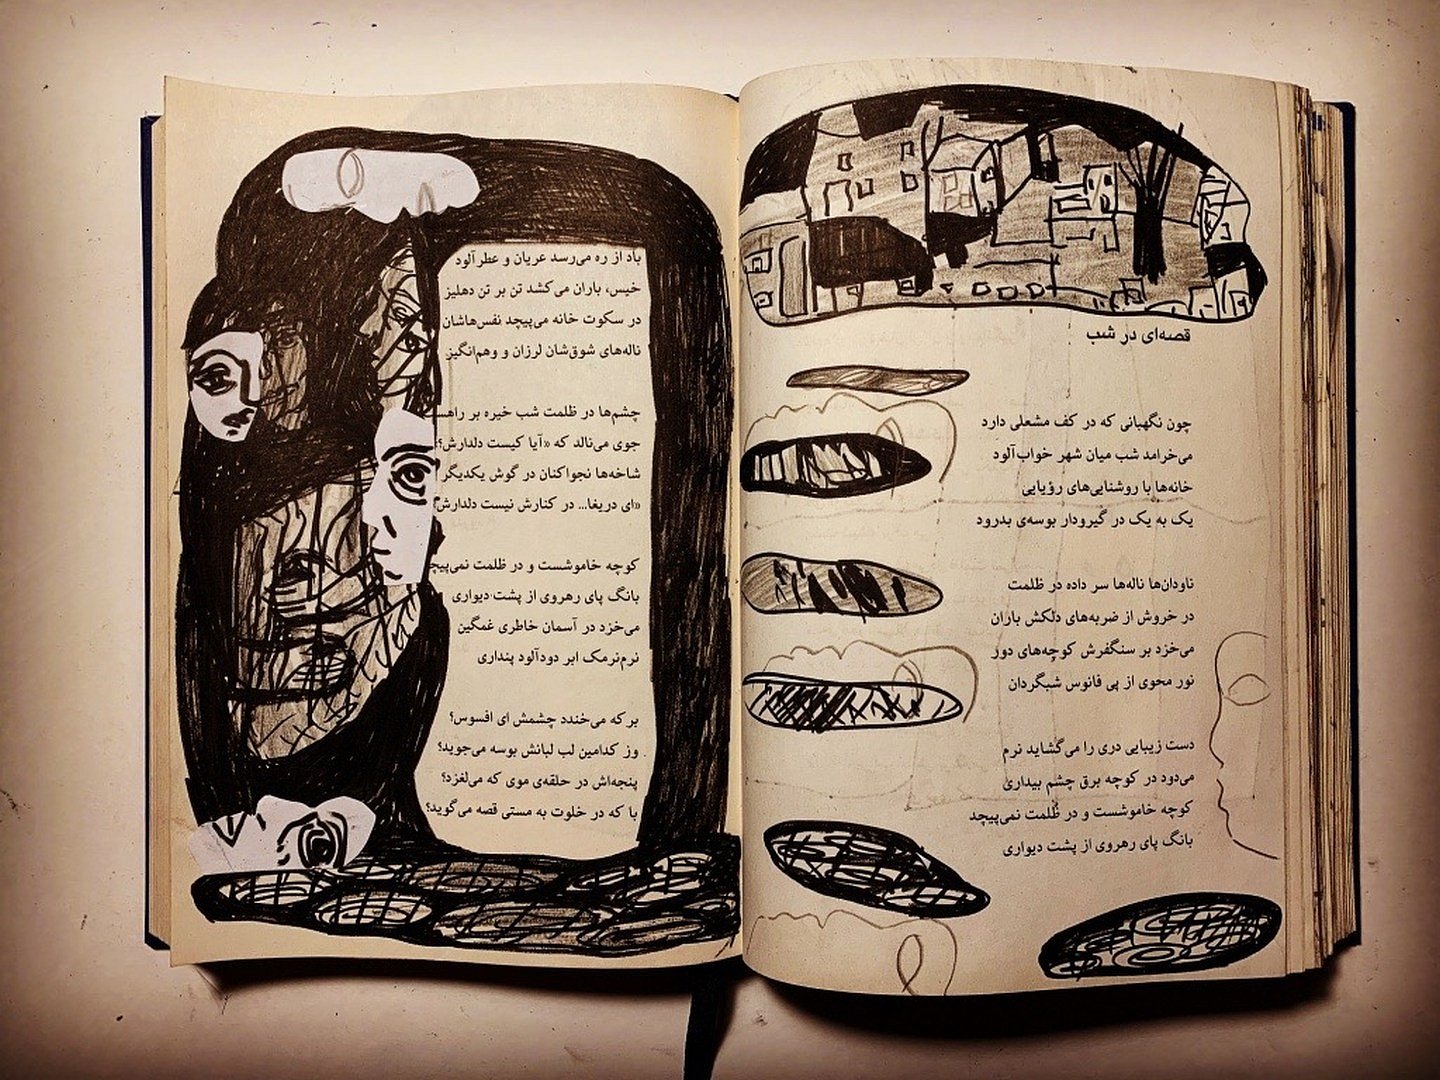 قصه‌ای در شب
چون نگهبانی که در کف مشعلی دارد
می‌خرامد شب میان شهر خواب‌آلود
خانه‌ها با روشنایی‌های رؤیایی
یک به یک در گیرودار بوسه‌ی بدرود
ناودان‌ها ناله‌ها سر داده در ظلمت
در خروش از ضربه‌های دلکش باران
می‌خزد بر سنگفرش کوچه‌های دور
نور محوی از پی فانوس شبگردان
دست زیبایی دری را می‌گشاید نرم
می‌دود در کوچه برق چشم بیداری
کوچه خاموشست و در ظلمت نمی‌پیچد
بانگ پای رهروی از پشت دیواری
باد از ره می‌رسد عریان و عطرآلود
خیس، باران می‌کشد تن بر تن دهلیز
در سکوت خانه می‌پیچد نفس‌هاشان
ناله‌های شوق‌شان لرزان و وهم‌انگیز
چشم‌ها در ظلمت شب خیره بر راهس
جوی می‌نالد که «آیا کیست دلدارش؟
شاخه‌ها نجواکنان در گوش یکدیگر
«ای دریغا... در کنارش نیست دلدارش
کوچه خاموشست و در ظلمت نمی‌پیچ
بانگ پای رهروی از پشت دیواری
می‌خزد در آسمان خاطری غمگین
نرم‌نرمک ابر دودآلود پنداری
بر که می‌خندد چشمش ای افسوس؟
وز کدامین لب لبانش بوسه می‌جوید؟
پنجه‌اش در حلقه‌ی موی که می‌لغزد؟
با که در خلوت به مستی قصه می‌گوید؟